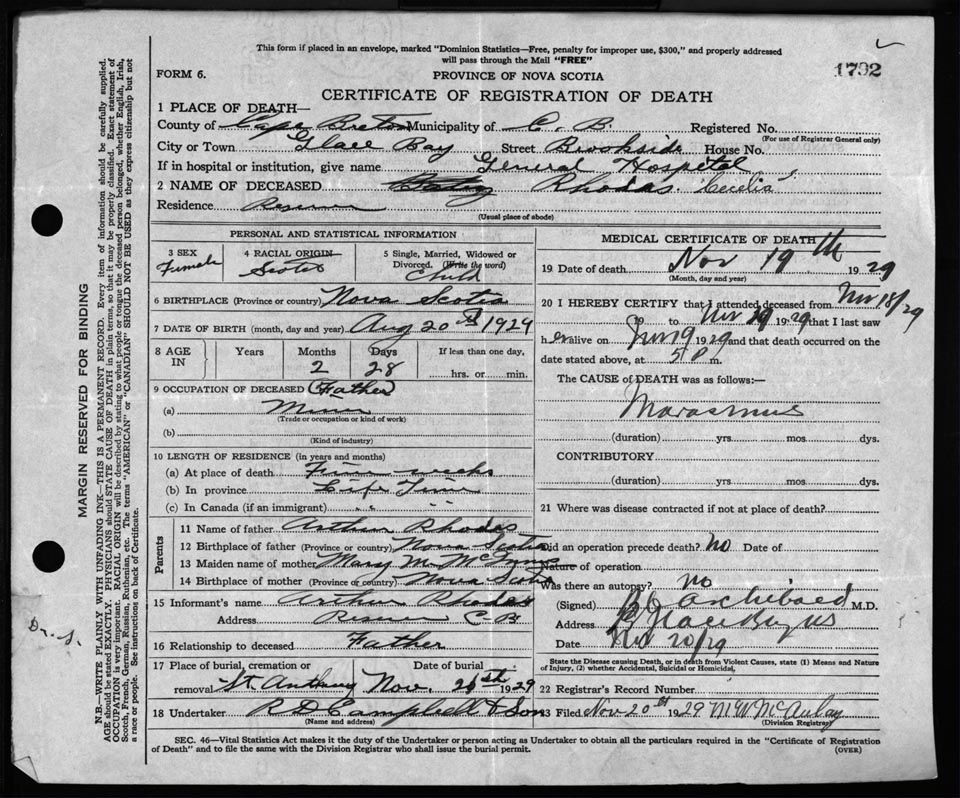 This form if placed in an envelope, marked "Dominion Statistics—Free, penalty for improper use, $300," and properly addressed
will pass through the Mail "FREE"
FORM 6.
PROVINCE OF NOVA SCOTIA
1792
CERTIFICATE OF REGISTRATION OF DEATH
1 PLACE OF DEATH—
County of Cape Breton Municipality of C. B. Registered No.
(For use of Registrar General only)
City or Town Glace Bay Street Brookside House No.
If in hospital or institution, give name General Hospital
2 NAME OF DECEASED Rhodas. Cecelia
Residence Reserve
(Usual place of abode)
PERSONAL AND STATISTICAL INFORMATION
3 SEX Female
4 RACIAL ORIGIN Scotch
5 Single, Married, Widowed or Divorced. (Write the word) Child
6 BIRTHPLACE (Province or country) Nova Scotia
7 DATE OF BIRTH (month, day and year) Aug 20th 1929
8 AGE IN Years Months 2 Days 28 If less than one day, hrs. or min.
9 OCCUPATION OF DECEASED (Father)
(a) Miner
(Trade or occupation or kind of work)
(b)
(Kind of industry)
10 LENGTH OF RESIDENCE (in years and months)
(a) At place of death weeks
(b) In province Life Time
(c) In Canada (if an immigrant)
Parents
11 Name of father Arthur Rhodas
12 Birthplace of father (Province or country) Nova Scotia
13 Maiden name of mother Mary M.
14 Birthplace of mother (Province or country) Nova Scotia
15 Informant's name Arthur Rhodas
Address Reserve C-B
16 Relationship to deceased Father
17 Place of burial, cremation or removal St. Anthony
Date of burial Nov. 21th 1929
18 Undertaker R D Campbell & Son
(Name and address)
MEDICAL CERTIFICATE OF DEATH
19 Date of death Nov 19th 1929
(Month, day and year)
20 I HEREBY CERTIFY that I attended deceased from Nov 18/29
19 to Nov 19 1929 that I last saw
her alive on Nov 19 1929 and that death occurred on the
date stated above, at 5 P m.
The CAUSE OF DEATH was as follows:—
Marasmus
(duration) yrs. mos. dys.
CONTRIBUTORY
(duration) yrs. mos. dys.
21 Where was disease contracted if not at place of death?
Did an operation precede death? no Date of
Nature of operation
Was there an autopsy? no
(Signed) Archibald M.D.
Address Glace Bay NS
Date Nov 20/29
State the Disease causing Death, or in death from Violent Causes, state (1) Means and Nature
of Injury, (2) whether Accidental, Suicidal or Homicidal.
22 Registrar's Record Number
23 Filed Nov 20th 1929 M W McAulay
(Division Registrar)
SEC. 46—Vital Statistics Act makes it the duty of the Undertaker or person acting as Undertaker to obtain all the particulars required in the "Certificate of Registration
of Death" and to file the same with the Division Registrar who shall issue the burial permit.
(OVER)
MARGIN RESERVED FOR BINDING
N.B.—WRITE PLAINLY WITH UNFADING INK—THIS IS A PERMANENT RECORD. Every item of information should be carefully supplied.
AGE should be stated EXACTLY. PHYSICIANS should STATE CAUSE OF DEATH in plain terms, so that it may be properly classified. Exact statement of
OCCUPATION is very important. RACIAL ORIGIN will be described by stating to what people or tongue the deceased person belonged, whether English, Irish,
Scotch, French, German, Russian, Ruthenian, etc. The terms "AMERICAN" or "CANADIAN" SHOULD NOT BE USED as they express citizenship but not
a race or people. See instructions on back of Certificate.